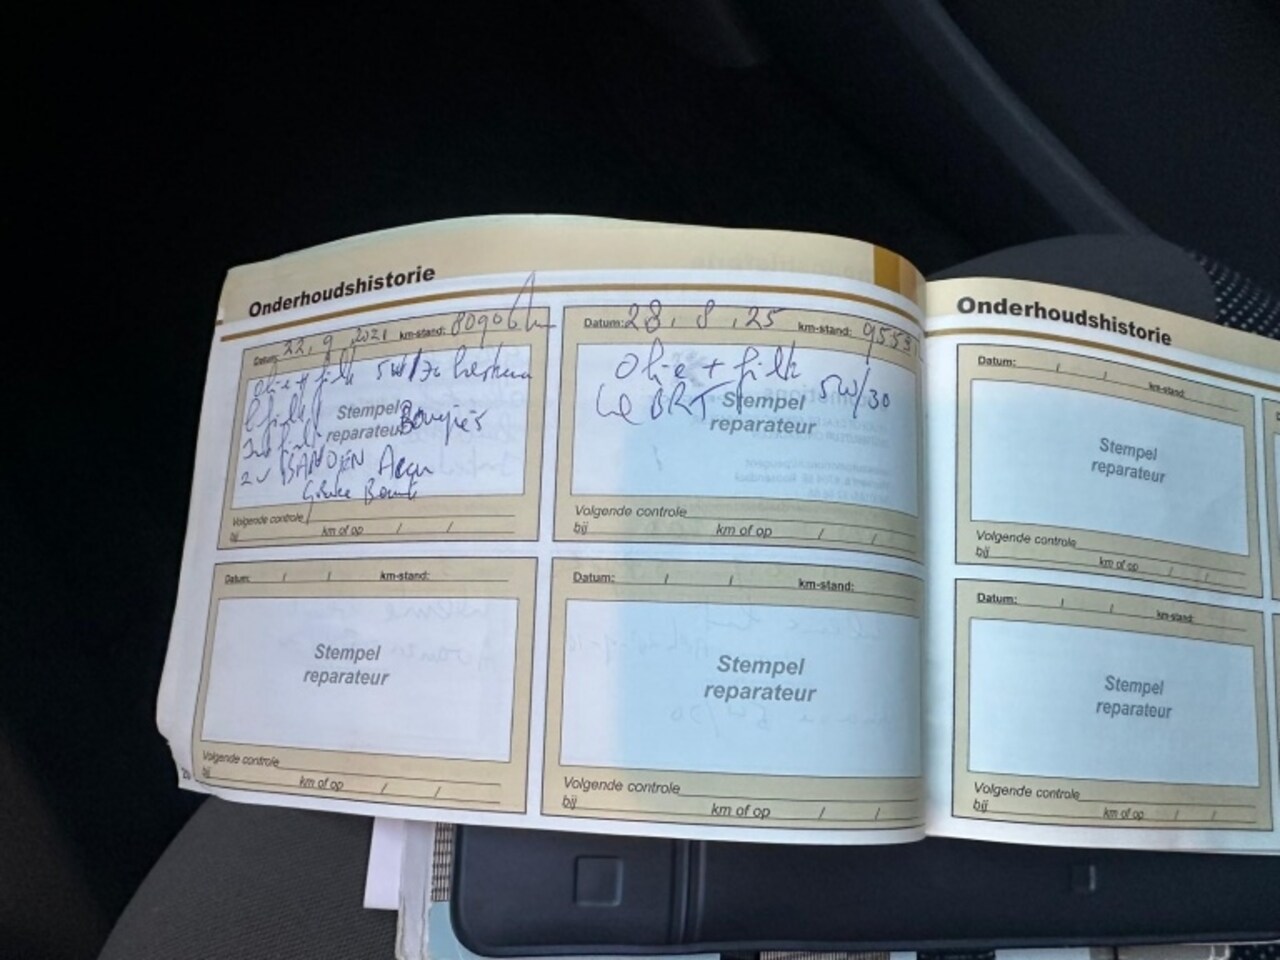 Onderhoudshistorie
Datum: 22, 9, 2021 km-stand:
Olie + filt 5W/30
Stempel
reparateur Bougies
Accu
Volgende controle
bij km of op / /
Datum: 28, 8, 25 km-stand:
Olie + filt
5W/30
Stempel
reparateur
Volgende controle
bij km of op / /
Datum: / / km-stand:
Stempel
reparateur
Volgende controle
bij km of op / /
Datum: / / km-stand:
Stempel
reparateur
Volgende controle
bij km of op / /
Onderhoudshistorie
Datum: / / km-stand:
Stempel
reparateur
Volgende controle
bij km of op / /
Datum: / / km-stand:
Stempel
reparateur
Volgende controle
bij km of op / /